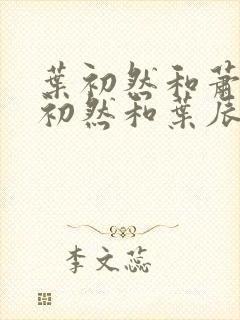 葉初然和蕭
初然和葉辰
李文蕊